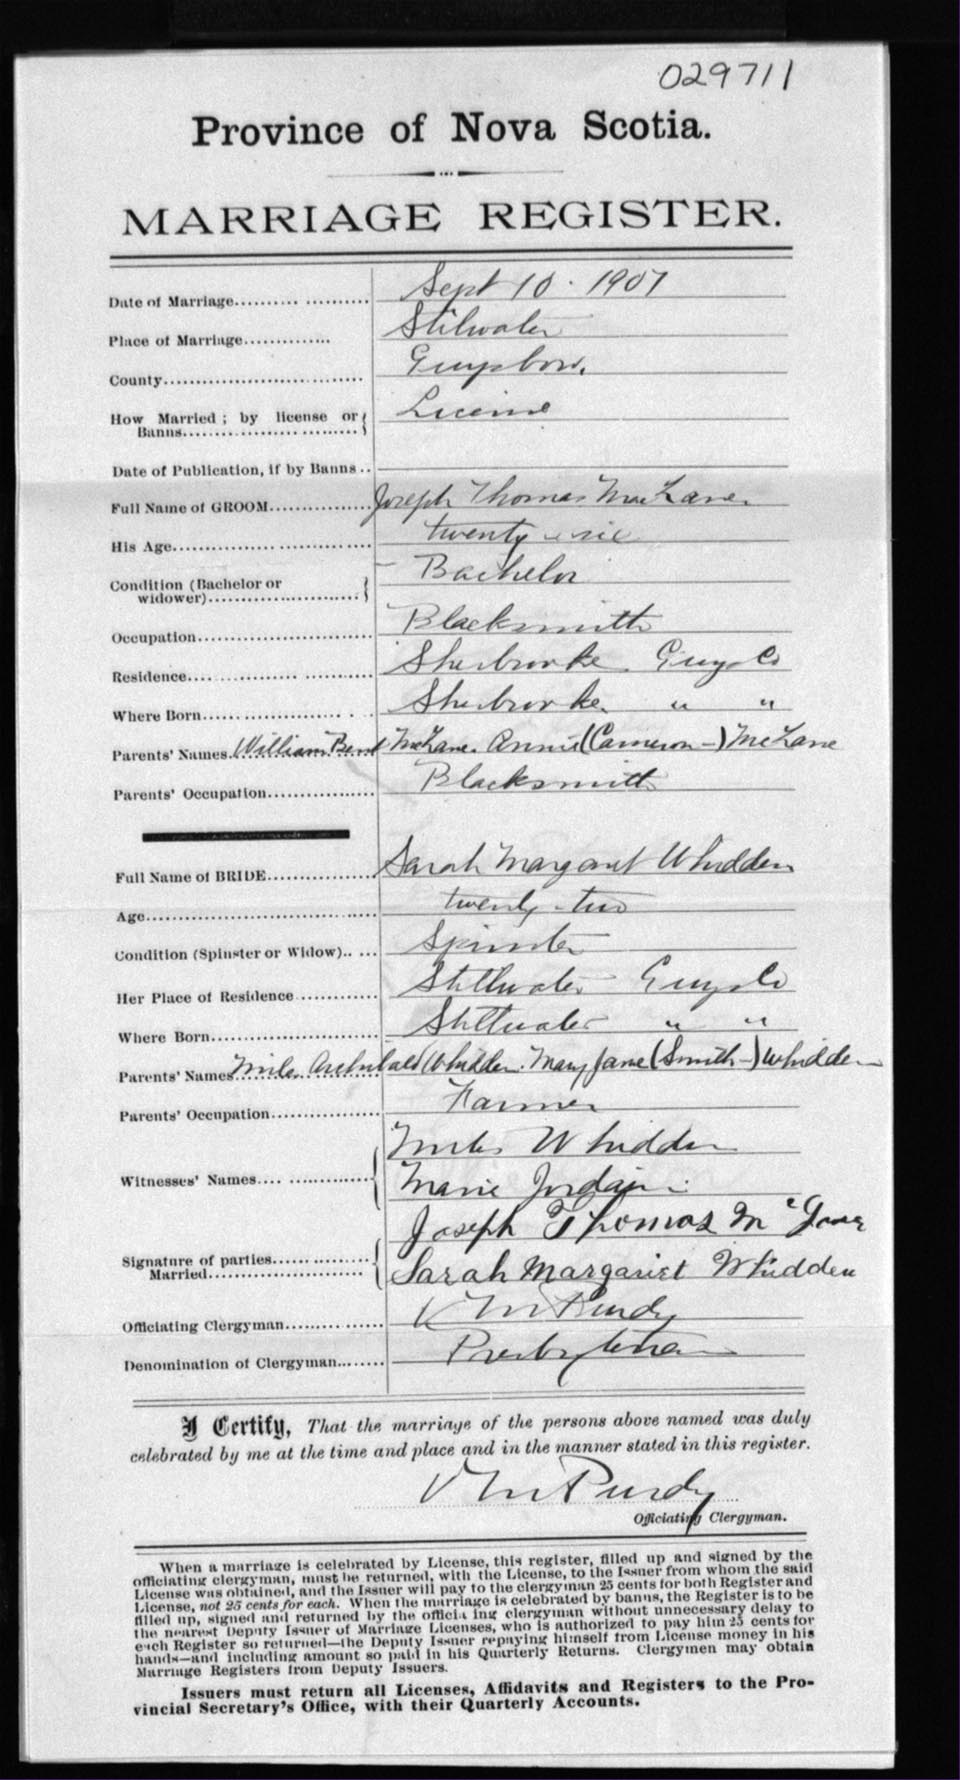 029711
Province of Nova Scotia.
MARRIAGE REGISTER.
Date of Marriage.......... .......... Sept 10 · 1907
Place of Marriage............. Stilwater
County............................... Guysboro.
How Married ; by license or { License
Banns.......................... }
Date of Publication, if by Banns ..
Full Name of GROOM............... Joseph Thomas MacLane
His Age............................... twenty
Condition (Bachelor or } Bachelor
widower)....................... }
Occupation........................... Blacksmith
Residence.... ............ ........... Sherbrooke Guys Co
Where Born.................. . . . Sherbrooke " "
Parents' Names. William Bent McLane. Annie (Cameron-) McLane
Parents' Occupation................ Blacksmith
Full Name of BRIDE................ Sarah Margaret Whidden
Age.................................... twenty-two
Condition (Spinster or Widow).. .... Spinster
Her Place of Residence............. Stillwater Guys Co
Where Born.......................... Stillwater " "
Parents' Names Miles Archibald Whidden. Mary Jane (Smith-) Whidden
Parents' Occupation................ Farmer
Miles Whidden
Witnesses' Names.... ............... { Marie Jordain
Joseph Thomas McLane
Signature of parties............... {
Married........................ { Sarah Margariet Whidden
Officiating Clergyman.............. Purdy
Denomination of Clergyman........ Presbyterian
I Certify, That the marriage of the persons above named was duly
celebrated by me at the time and place and in the manner stated in this register.
Purdy
Officiating Clergyman.
When a marriage is celebrated by License, this register, filled up and signed by the
officiating clergyman, must be returned, with the License, to the Issuer from whom the said
License was obtained, and the Issuer will pay to the clergyman 25 cents for both Register and
License, not 25 cents for each. When the marriage is celebrated by banns, the Register is to be
filled up, signed and returned by the officia ing clergyman without unnecessary delay to
the nearest Deputy Issuer of Marriage Licenses, who is authorized to pay him 25 cents for
each Register so returned—the Deputy Issuer repaying himself from License money in his
hands—and including amount so paid in his Quarterly Returns. Clergymen may obtain
Marriage Registers from Deputy Issuers.
Issuers must return all Licenses, Affidavits and Registers to the Pro-
vincial Secretary's Office, with their Quarterly Accounts.